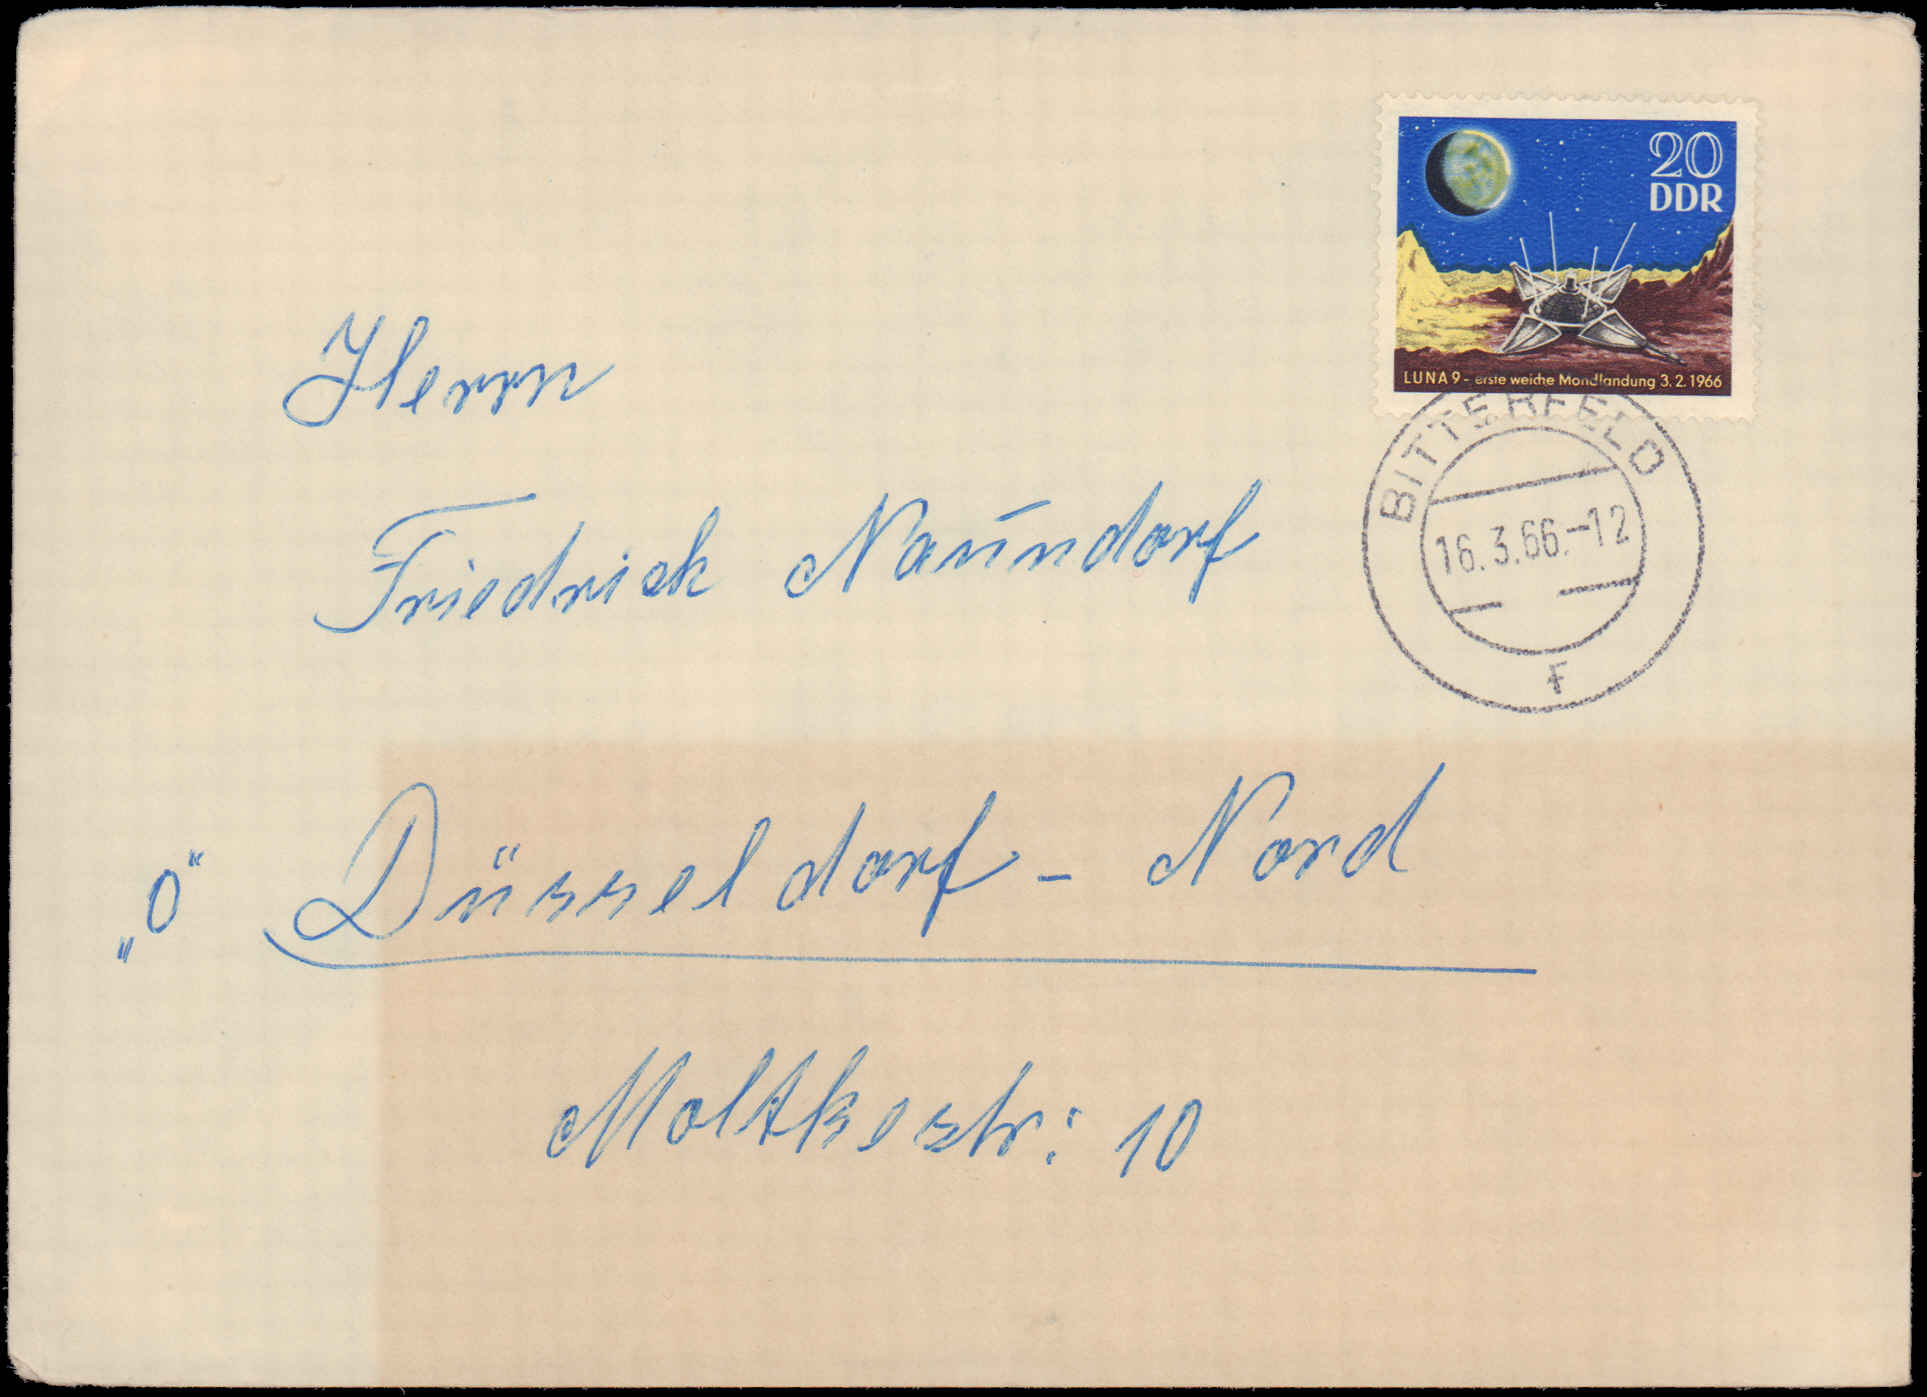 20
DDR
LUNA 9 - erste weiche Mondlandung 3.2.1966
BITTERFELD
16.3.66.-12
F
Herrn
Friedrich Naundorf
„O“ Düsseldorf - Nord
Moltkestr: 10